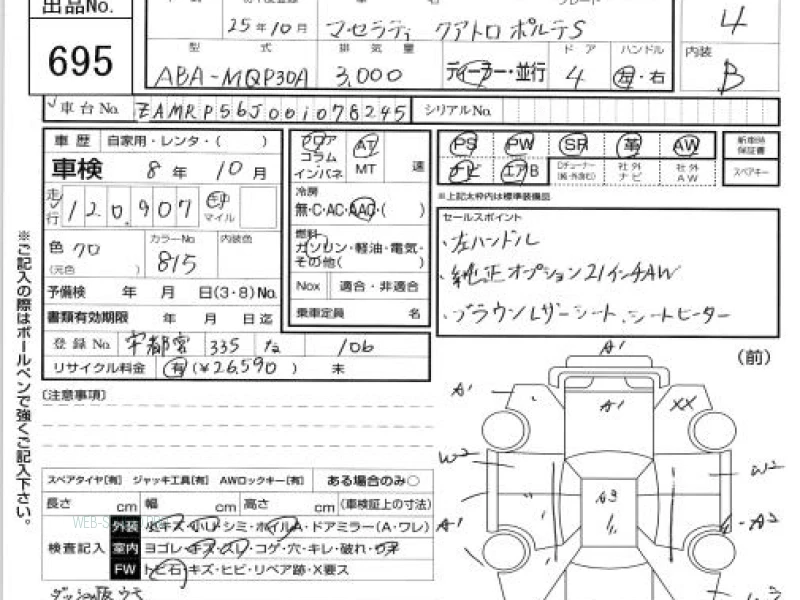 出品No.
695
25年10月
マセラティ クアトロポルテS
4
型 式
排 気 量
ドア
ハンドル
内装
ABA-MQP30A
3,000
ディーラー・並行
4
左・右
B
車台No.
ZAMRP56J001078245
シリアルNo.
車 歴
自家用・レンタ・( )
車検
8年 10月
走行
120,907
マイル
色
クロ
(元色 )
カラーNo
815
内装色
予備検 年 月 日(3・8)No.
書類有効期限 年 月 日迄
登録No.
宇都宮 335 106
リサイクル料金
有(¥26,590) 未
コラム
インパネ
AT
MT
速
冷房
無・C・AC・AAC・( )
燃料
ガソリン・軽油・電気・
その他( )
Nox
適合・非適合
乗車定員 名
PS
PW
SR
革
AW
ナビ
エアB
社外ナビ
社外AW
新車時保証書
スペアキー
※上記太枠内は標準装備品
セールスポイント
・左ハンドル
・純正オプション21インチAW
・ブラウンレザーシート、シートヒーター
※ご記入の際はボールペンで強くご記入下さい。
(前)
A1
A1
A1
XX
W2
W2
A3
A1
A2
〔注意事項〕
スペアタイヤ[有] ジャッキ工具[有] AWロックキー[有] ある場合のみ○
長さ cm 幅 cm 高さ cm (車検証上の寸法)
検査記入
外装
小キズ・小凹・シミ・ホイルA・ドアミラー(A・ワレ)
室内
ヨゴレ・キズ・スレ・コゲ・穴・キレ・破れ・
FW
トビ石・キズ・ヒビ・リペア跡・X要ス